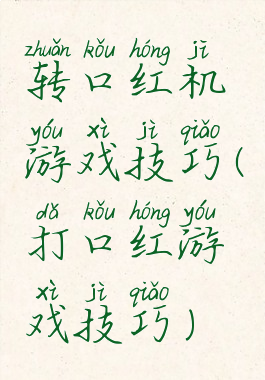 zhuǎn kǒu hóng jī
转口红机
yóu xì jì qiǎo
游戏技巧(
dǎ kǒu hóng yóu
打口红游
xì jì qiǎo
戏技巧)